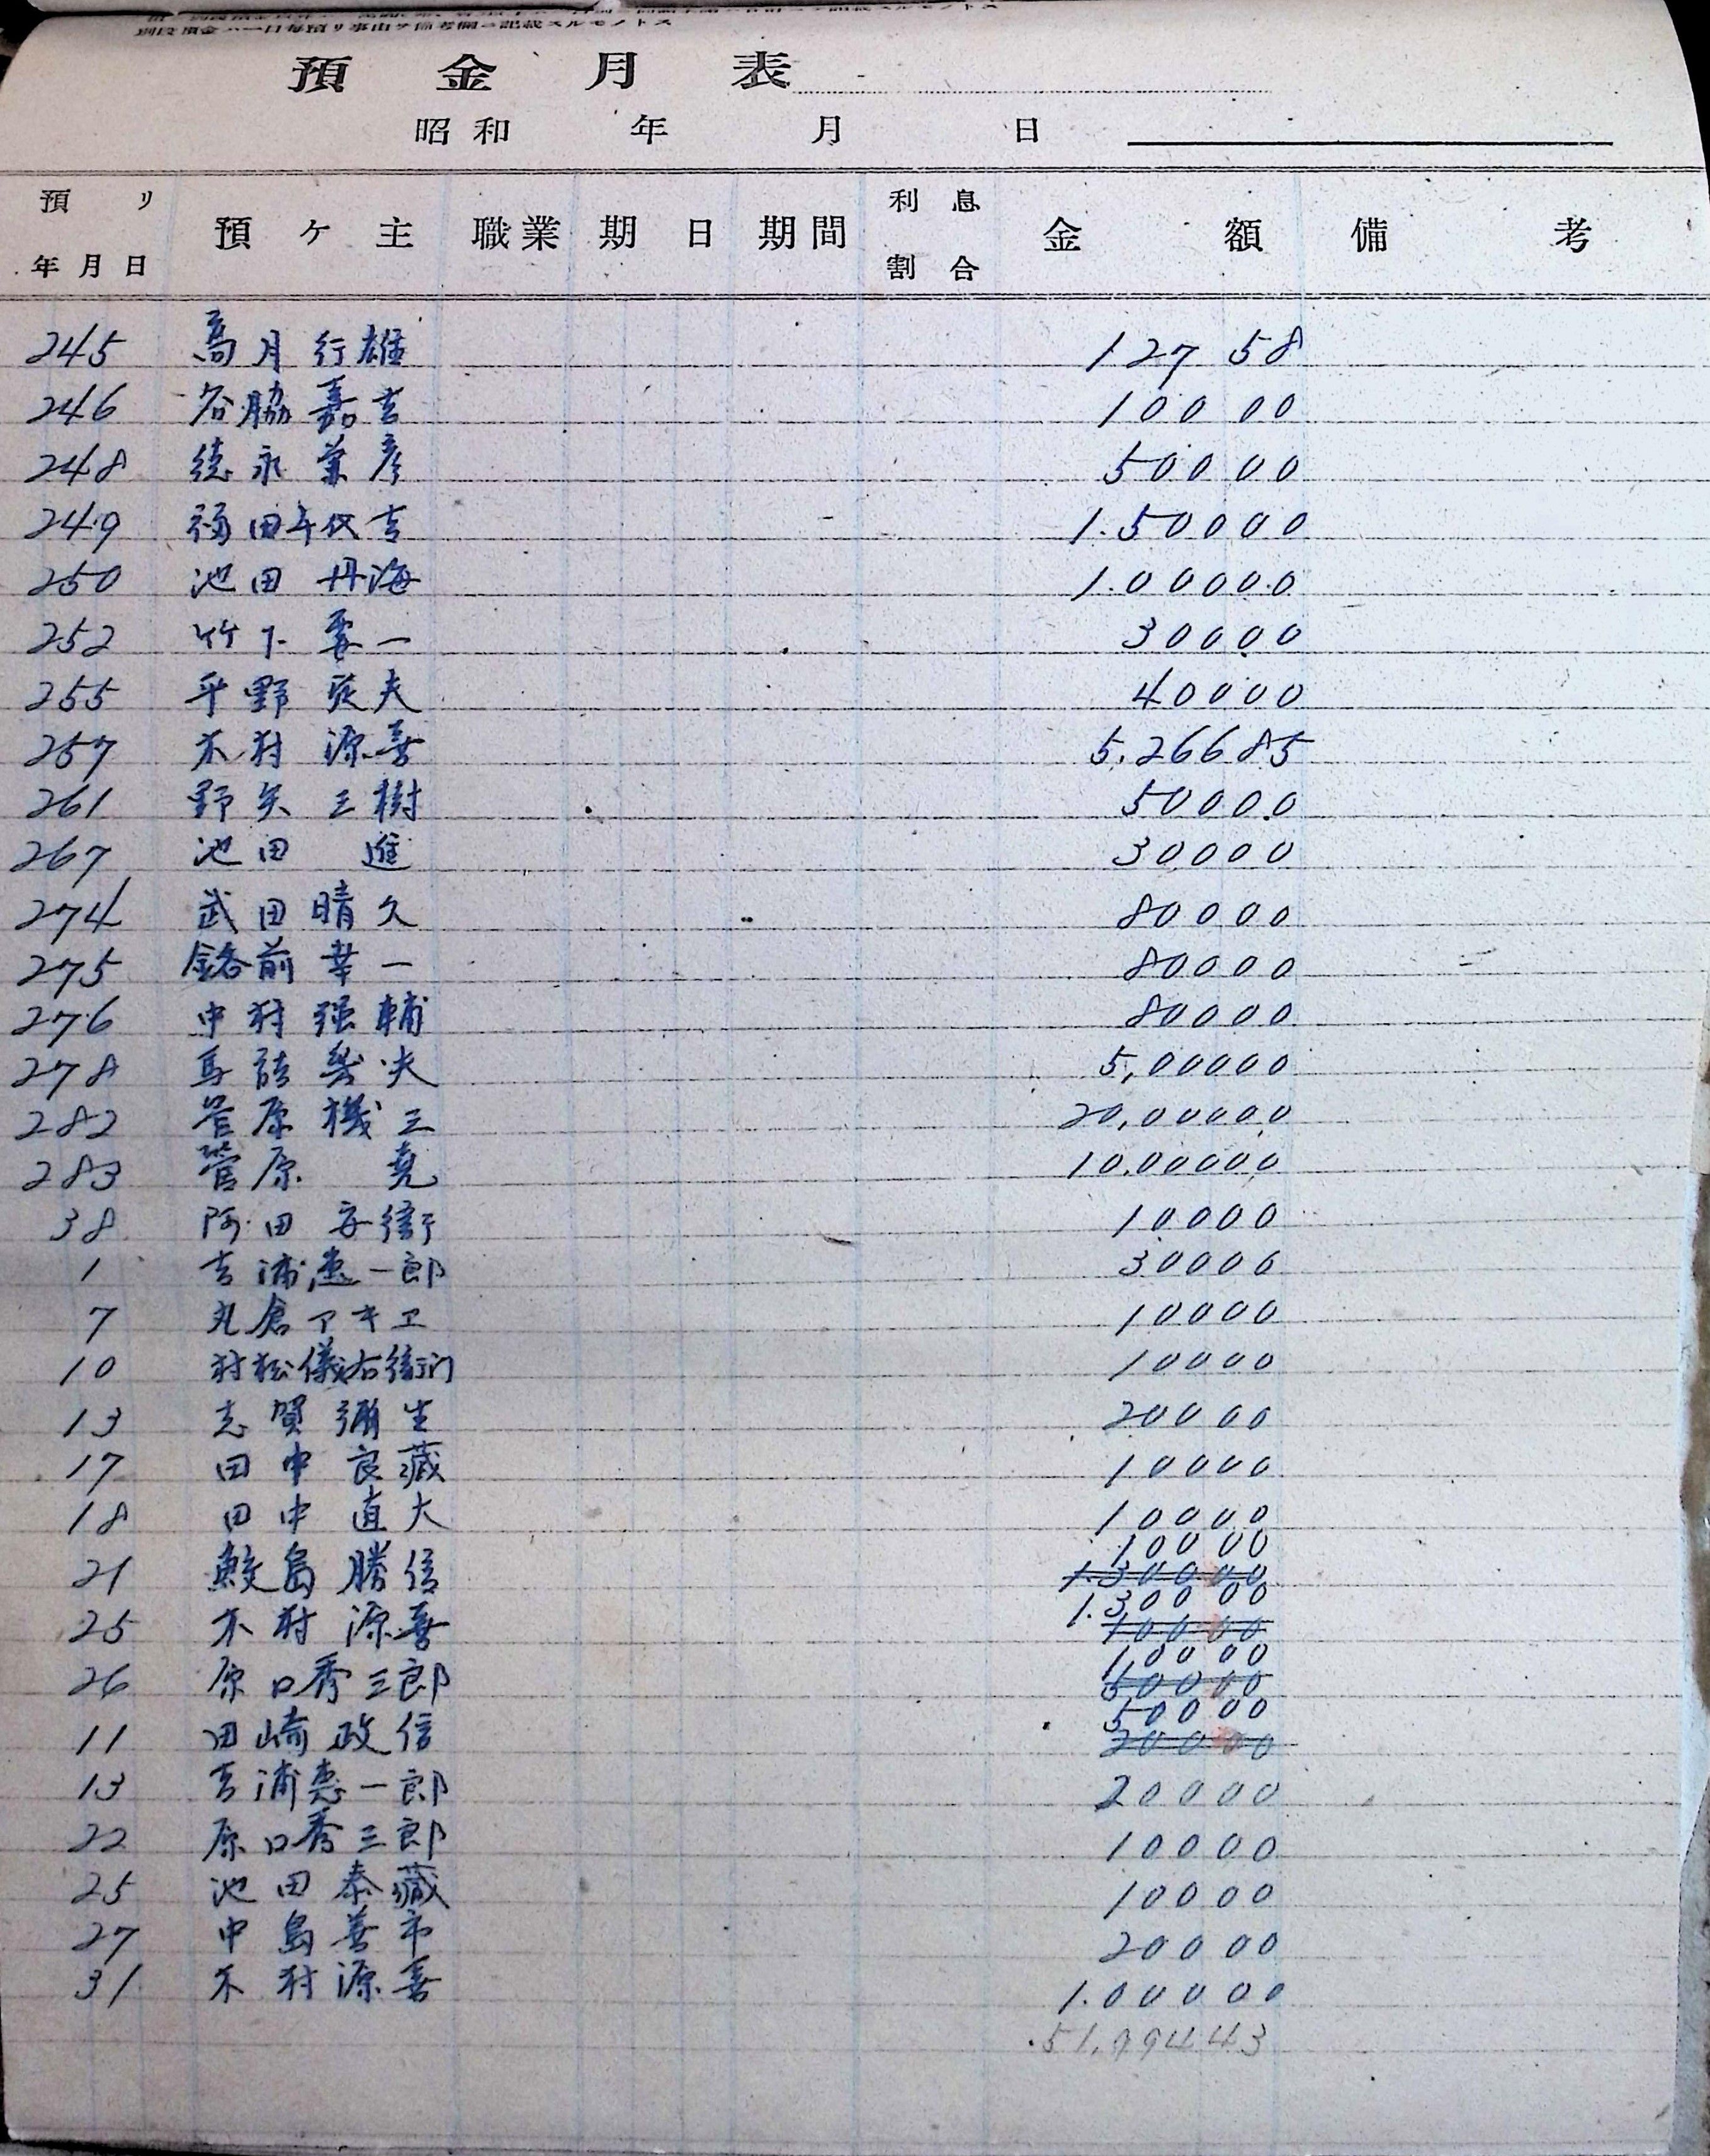 預金月表
昭和 年 月 日
預リ年月日 預ケ主 職業 期日 期間 利息割合 金額 備考
245 高月行雄 127 58
246 谷脇嘉吉 100 00
248 徳永業彦 500 00
249 福田年代吉 1.500 00
250 池田丹海 1.000 00
252 竹下 一 300 00
255 平野 夫 400 00
257 木村源喜 5.266 85
261 野矢三樹 500 00
267 池田進 300 00
274 武田晴久 800 00
275 前幸一 800 00
276 中村強輔 800 00
278 馬 夫 5,000 00
282 菅原機三 20,000 00
283 菅原尭 10.000 00
38 阿田安衛 100 00
1 吉浦恵一郎 300 00
7 丸倉アキヱ 100 00
10 村松儀右衛門 100 00
13 志賀彌生 200 00
17 田中良藏 100 00
18 田中直大 100 00
100 00
21 鮫島勝信 1.300 00
1.300 00
25 木村源喜 100 00
100 00
26 原口秀三郎 500 00
500 00
11 田崎政信 200 00
13 吉浦恵一郎 200 00
22 原口秀三郎 100 00
25 池田泰藏 100 00
27 中島善市 200 00
31 木村源喜 1.000 00
51,994 43